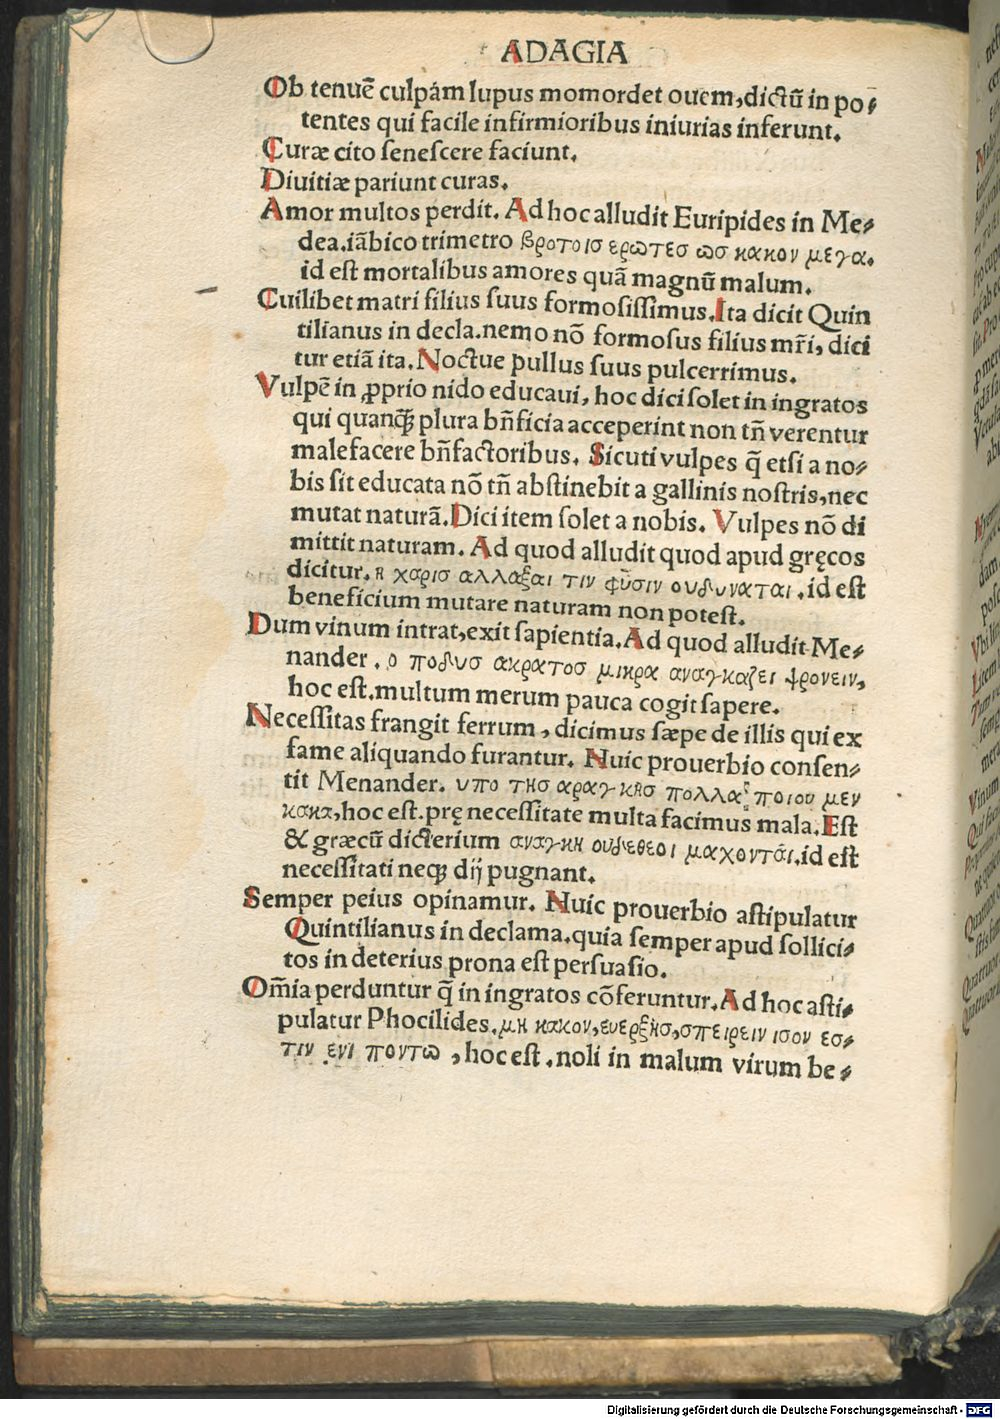 ADAGIA
Ob tenuē culpam lupus momordet ouem, dictū in po⸗
tentes qui facile infirmioribus iniurias inferunt.
Curæ cito ſeneſcere faciunt.
Diuitiæ pariunt curas.
Amor multos perdit. Ad hoc alludit Euripides in Me⸗
dea. iābico trimetro βροτοισ ερωτεσ ωσ κακον μεγα.
id eſt mortalibus amores quā magnū malum.
Cuilibet matri filius ſuus formoſiſſimus. Ita dicit Quin
tilianus in decla. nemo nō formoſus filius mr̄i, dici
tur etiā ita. Noctue pullus ſuus pulcerrimus.
Vulpē in ꝓprio nido educaui, hoc dici ſolet in ingratos
qui quanꝙ̄ plura bn̄ficia acceperint non tn̄ verentur
malefacere bn̄factoribus. Sicuti vulpes q̄ etſi a no⸗
bis ſit educata nō tn̄ abſtinebit a gallinis noſtris, nec
mutat naturā. Dici item ſolet a nobis. Vulpes nō di
mittit naturam. Ad quod alludit quod apud gręcos
dicitur. η χαρισ αλλαξαι τιν φῦσιν ουδυναται. id eſt
beneficium mutare naturam non poteſt.
Dum vinum intrat, exit ſapientia. Ad quod alludit Me⸗
nander. ο ποδυσ ακρατοσ μικρα αναγκαζει ψρονειν,
hoc eſt. multum merum pauca cogit ſapere.
Neceſſitas frangit ferrum, dicimus ſæpe de illis qui ex
fame aliquando furantur. Nuic prouerbio conſen⸗
tit Menander. υπο τησ αραγκησ πολλα ποιου μεν
κακα, hoc eſt. prę neceſſitate multa facimus mala. Eſt
& græcū dicterium αναγκη ουδεθεοι μαχοντάι. id eſt
neceſſitati neqꝫ dij pugnant.
Semper peius opinamur. Nuic prouerbio aſtipulatur
Quintilianus in declama. quia ſemper apud ſollici⸗
tos in deterius prona eſt perſuaſio.
Om̄ia perduntur q̄ in ingratos cōferuntur. Ad hoc aſti⸗
pulatur Phocilides. μη κακον, ευερξησ, σπειρειν ισον εσ⸗
τιν ενι ποντω, hoc eſt. noli in malum virum be⸗
Digitalisierung gefördert durch die Deutsche Forschungsgemeinschaft - DFG